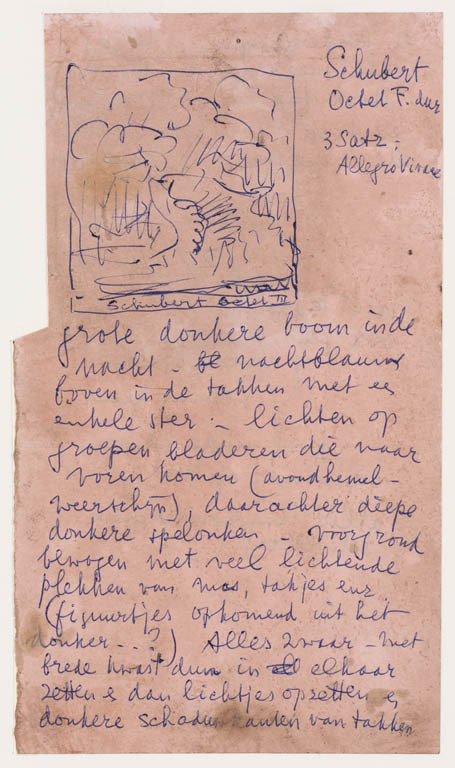 Schubert
Octet F. dur
3 Satz:
Allegro Vivace
Schubert Octet III
grote donkere boom in de
nacht - nachtblauw
boven in de takken met een
enkele ster. - lichten op
groepen bladeren die naar
voren komen (avondhemel-
weerschijn), daarachter diepe
donkere spelonken - voorgrond
bewogen met veel lichtende
plekken van mos, takjes enz.
(figuurtjes opkomend uit het
donker...?) Alles zwaar - met
brede kwast dun in elkaar
zetten & dan lichtjes opzetten &
donkere schaduwkanten van takken